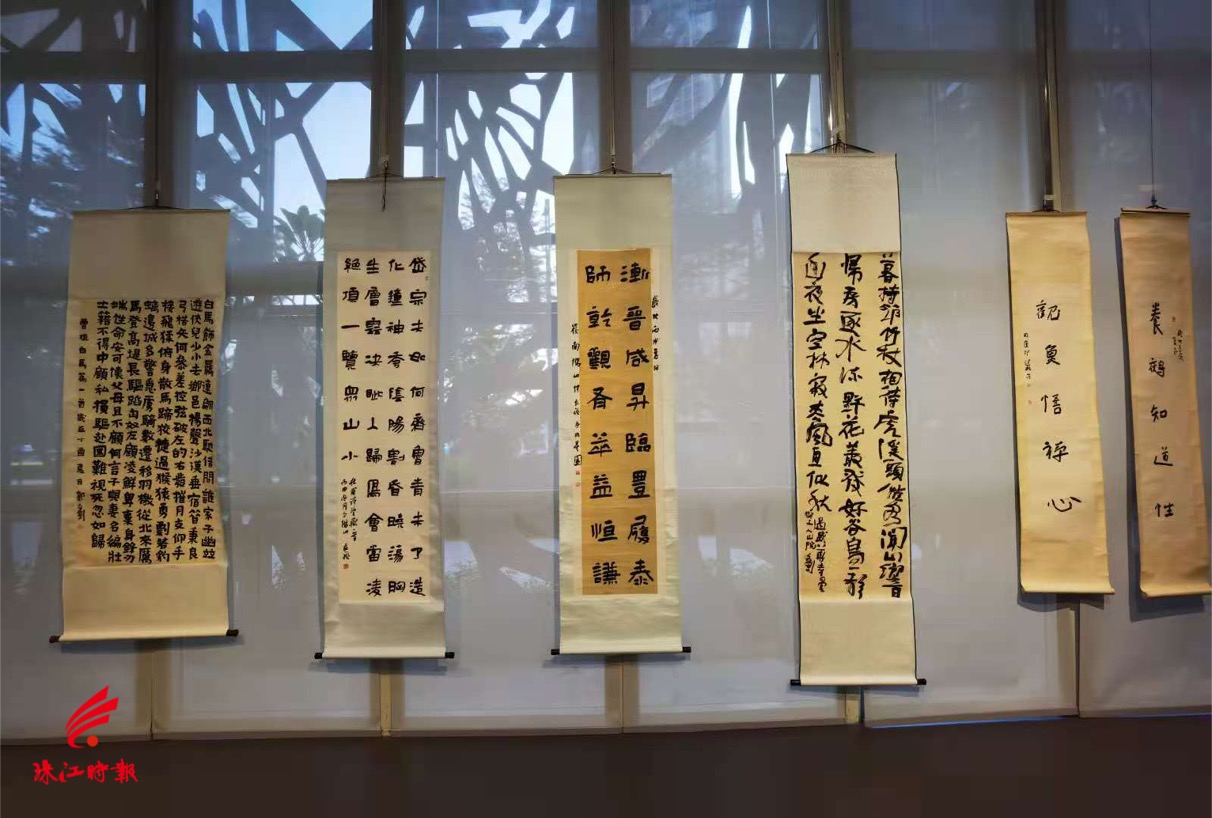 養鶴知道性
觀魚悟禪心
暮持筇竹杖相待虎溪頭催客聞山響
歸房逐水流野花叢發好谷鳥一聲
幽夜坐空林寂松風直似秋
漸晉咸昇臨豊履泰
師乾觀斉萃益恒謙
岱宗夫如何齊魯青未了造
化鍾神秀陰陽割昏曉蕩胸
生層雲決眦入歸鳥會當凌
絕頂一覽眾山小
白馬飾金羈連翩西北馳借問誰家子幽並
遊俠兒少小去鄉邑揚聲沙漠垂宿昔秉良
弓楛矢何參差控弦破左的右發摧月支仰手
接飛猱俯身散馬蹄狡捷過猴猿勇剽若豹
螭邊城多警急虜騎數遷移羽檄從北來厲
馬登高堤長驅蹈匈奴左顧凌鮮卑棄身鋒刃
端性命安可懷父母且不顧何言子與妻名編壯
士籍不得中顧私捐軀赴國難視死忽如歸
曹植白馬篇
珠江時報